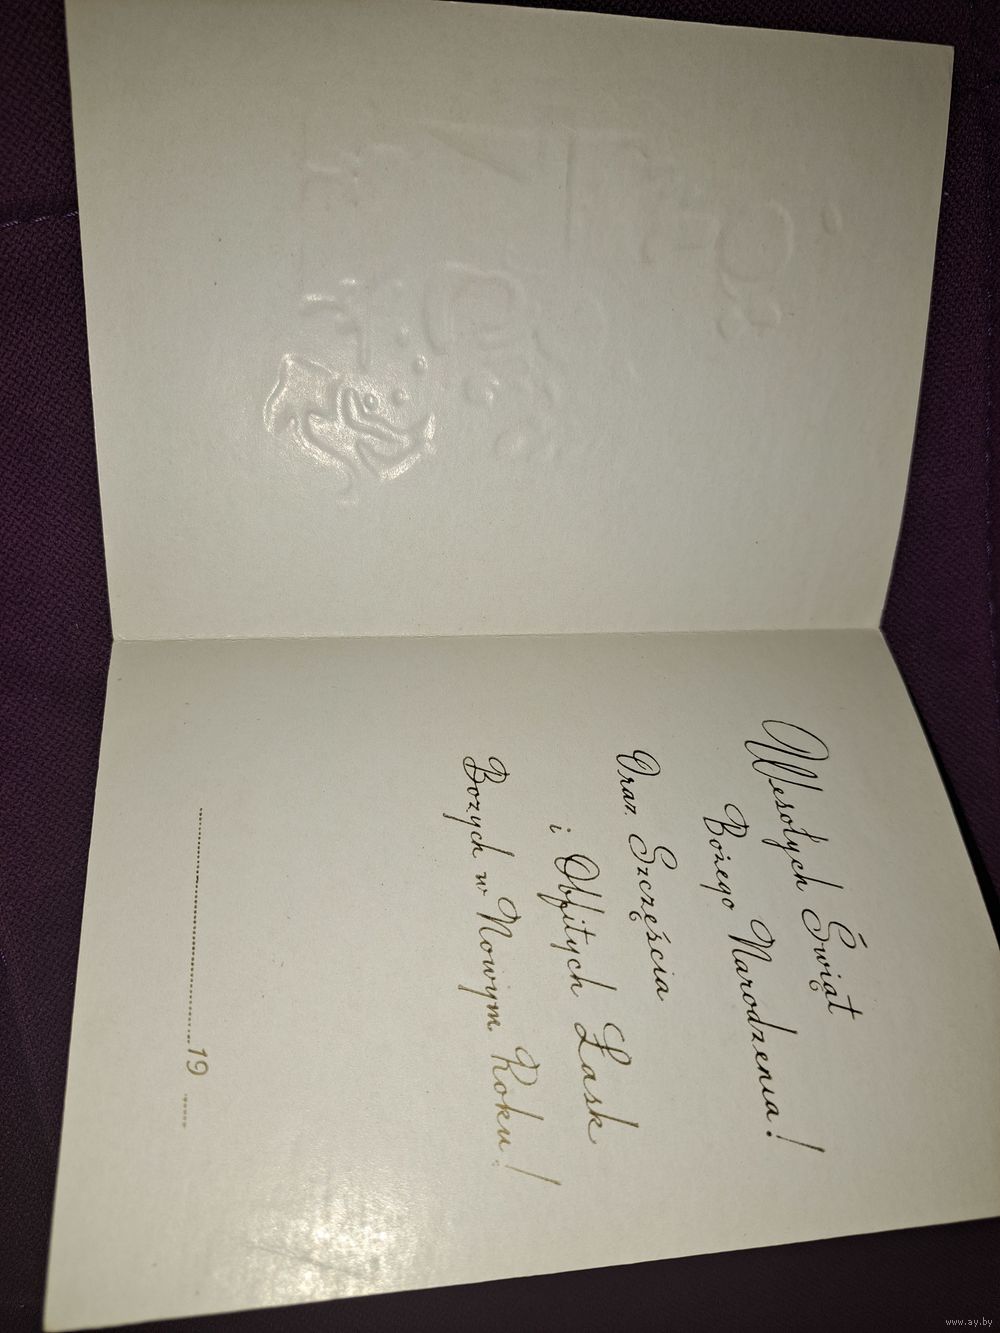 Wesołych Świąt
Bożego Narodzenia!
Oraz Szczęścia
i Obfitych Łask
Bożych w Nowym Roku!
19
www.ay.by